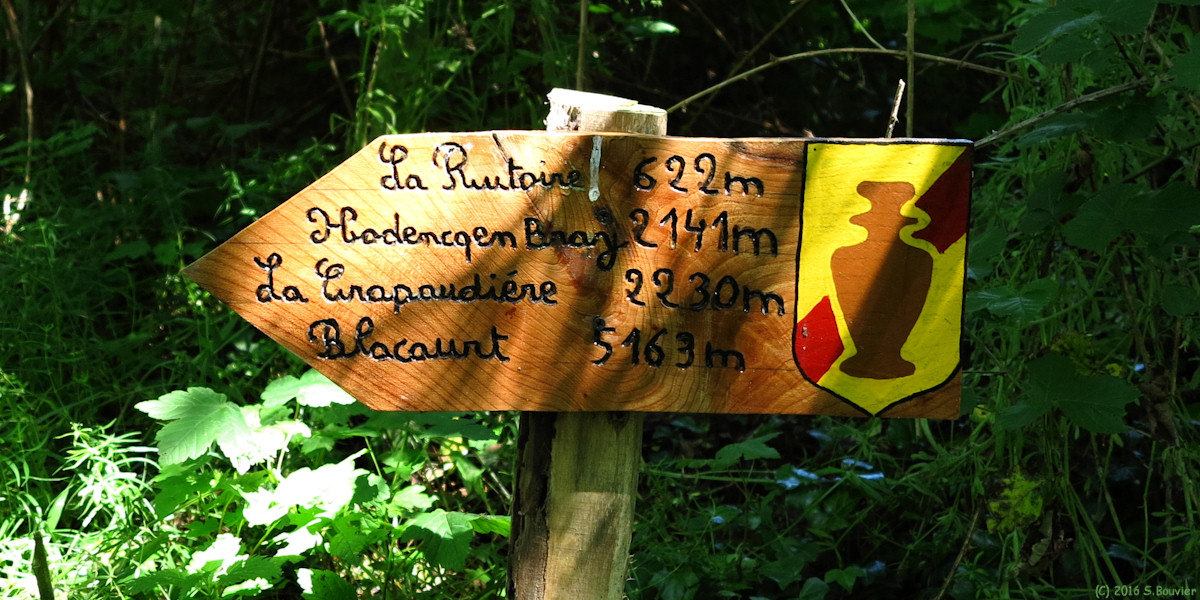 La Rutoire 622m
Hodencqen Bray 2141m
La Crapaudiére 2230m
Blacourt 5163m
(C) 2016 S.Bouvier